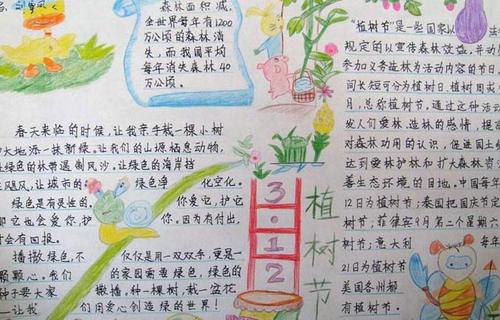 森林面积减,
全世界每年有1200
万公顷的森林消
失,而我国平均
每年消失森林40
万公顷。
春天来临的时候,让我亲手栽一棵小树
大地添一抹新绿。让我们的山源栖息动物,
绿色的林带遏制风沙。让绿色的海岸挡
飓风,让城市的绿色净化空化。
绿色是有灵性的,你爱它,护它
那它也会爱你,护你。因为有付出,
会有回报。
播撒绿色,不仅仅用一双双手,更是一
颗颗心。我们的家园需要绿色,绿色的
种子要大家播撒。种一棵树,栽一盆花
—让我们用爱心创造绿的世界!
3·12
植树节
"植树节"是一些国家以
规定的以宣传森林效益,并动
参加义务造林为活动内容的节日,
间长短可分为植树日,植树周或
月,总称植树节。通过这种活
发人们爱林、造林的感情,提
对森林功用的认识,促进国土
达到爱林护林和扩大森林资
善生态环境的目地。中国每年
12日为植树节;泰国把国庆节定
树节;菲律宾9月第二个星期六
树节;意大利 每
21日为植树节
美国各州都
有植树节。